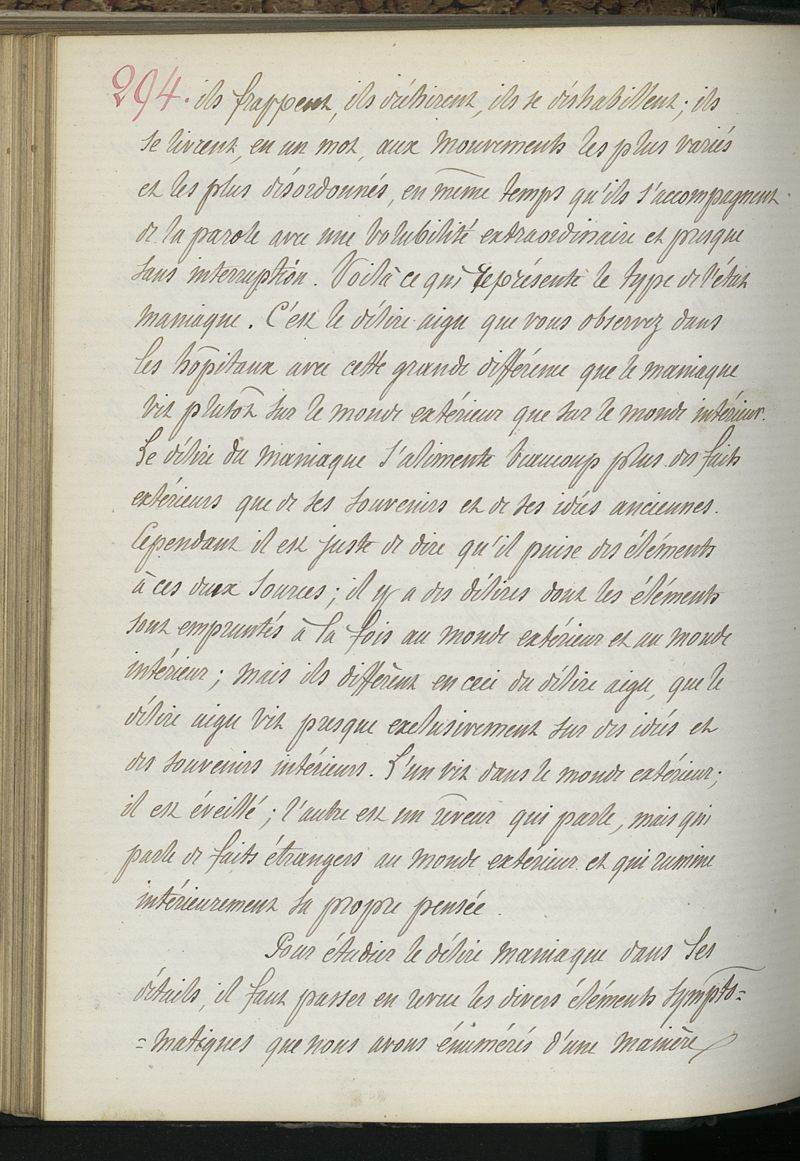 294. ils frappent, ils déchirent, ils se déshabillent; ils
se livrent, en un mot, aux mouvements les plus variés
et les plus désordonnés, en même temps qu'ils s'accompagnent
de la parole avec une volubilité extraordinaire et presque
sans interruption. Voilà ce qui représente le type de l'état
maniaque. C'est le délire aigu que vous observez dans
les hôpitaux avec cette grande différence que le maniaque
vit plutôt sur le monde extérieur que sur le monde intérieur.
Le délire du maniaque s'alimente beaucoup plus des faits
extérieurs que de ses souvenirs et de ses idées anciennes.
Cependant il est juste de dire qu'il puise des éléments
à ces deux sources; il y a des délires dont les éléments
sont empruntés à la fois au monde extérieur et au monde
intérieur; mais ils diffèrent en ceci du délire aigu, que le
délire aigu vit presque exclusivement sur des idées et
des souvenirs intérieurs. L'un vit dans le monde extérieur;
il est éveillé; l'autre est un rêveur qui parle, mais qui
parle de faits étrangers au monde extérieur et qui rumine
intérieurement sa propre pensée.
Pour étudier le délire maniaque dans ses
détails, il faut passer en revue les divers éléments sympto=
=matiques que nous avons énumérés d'une manière